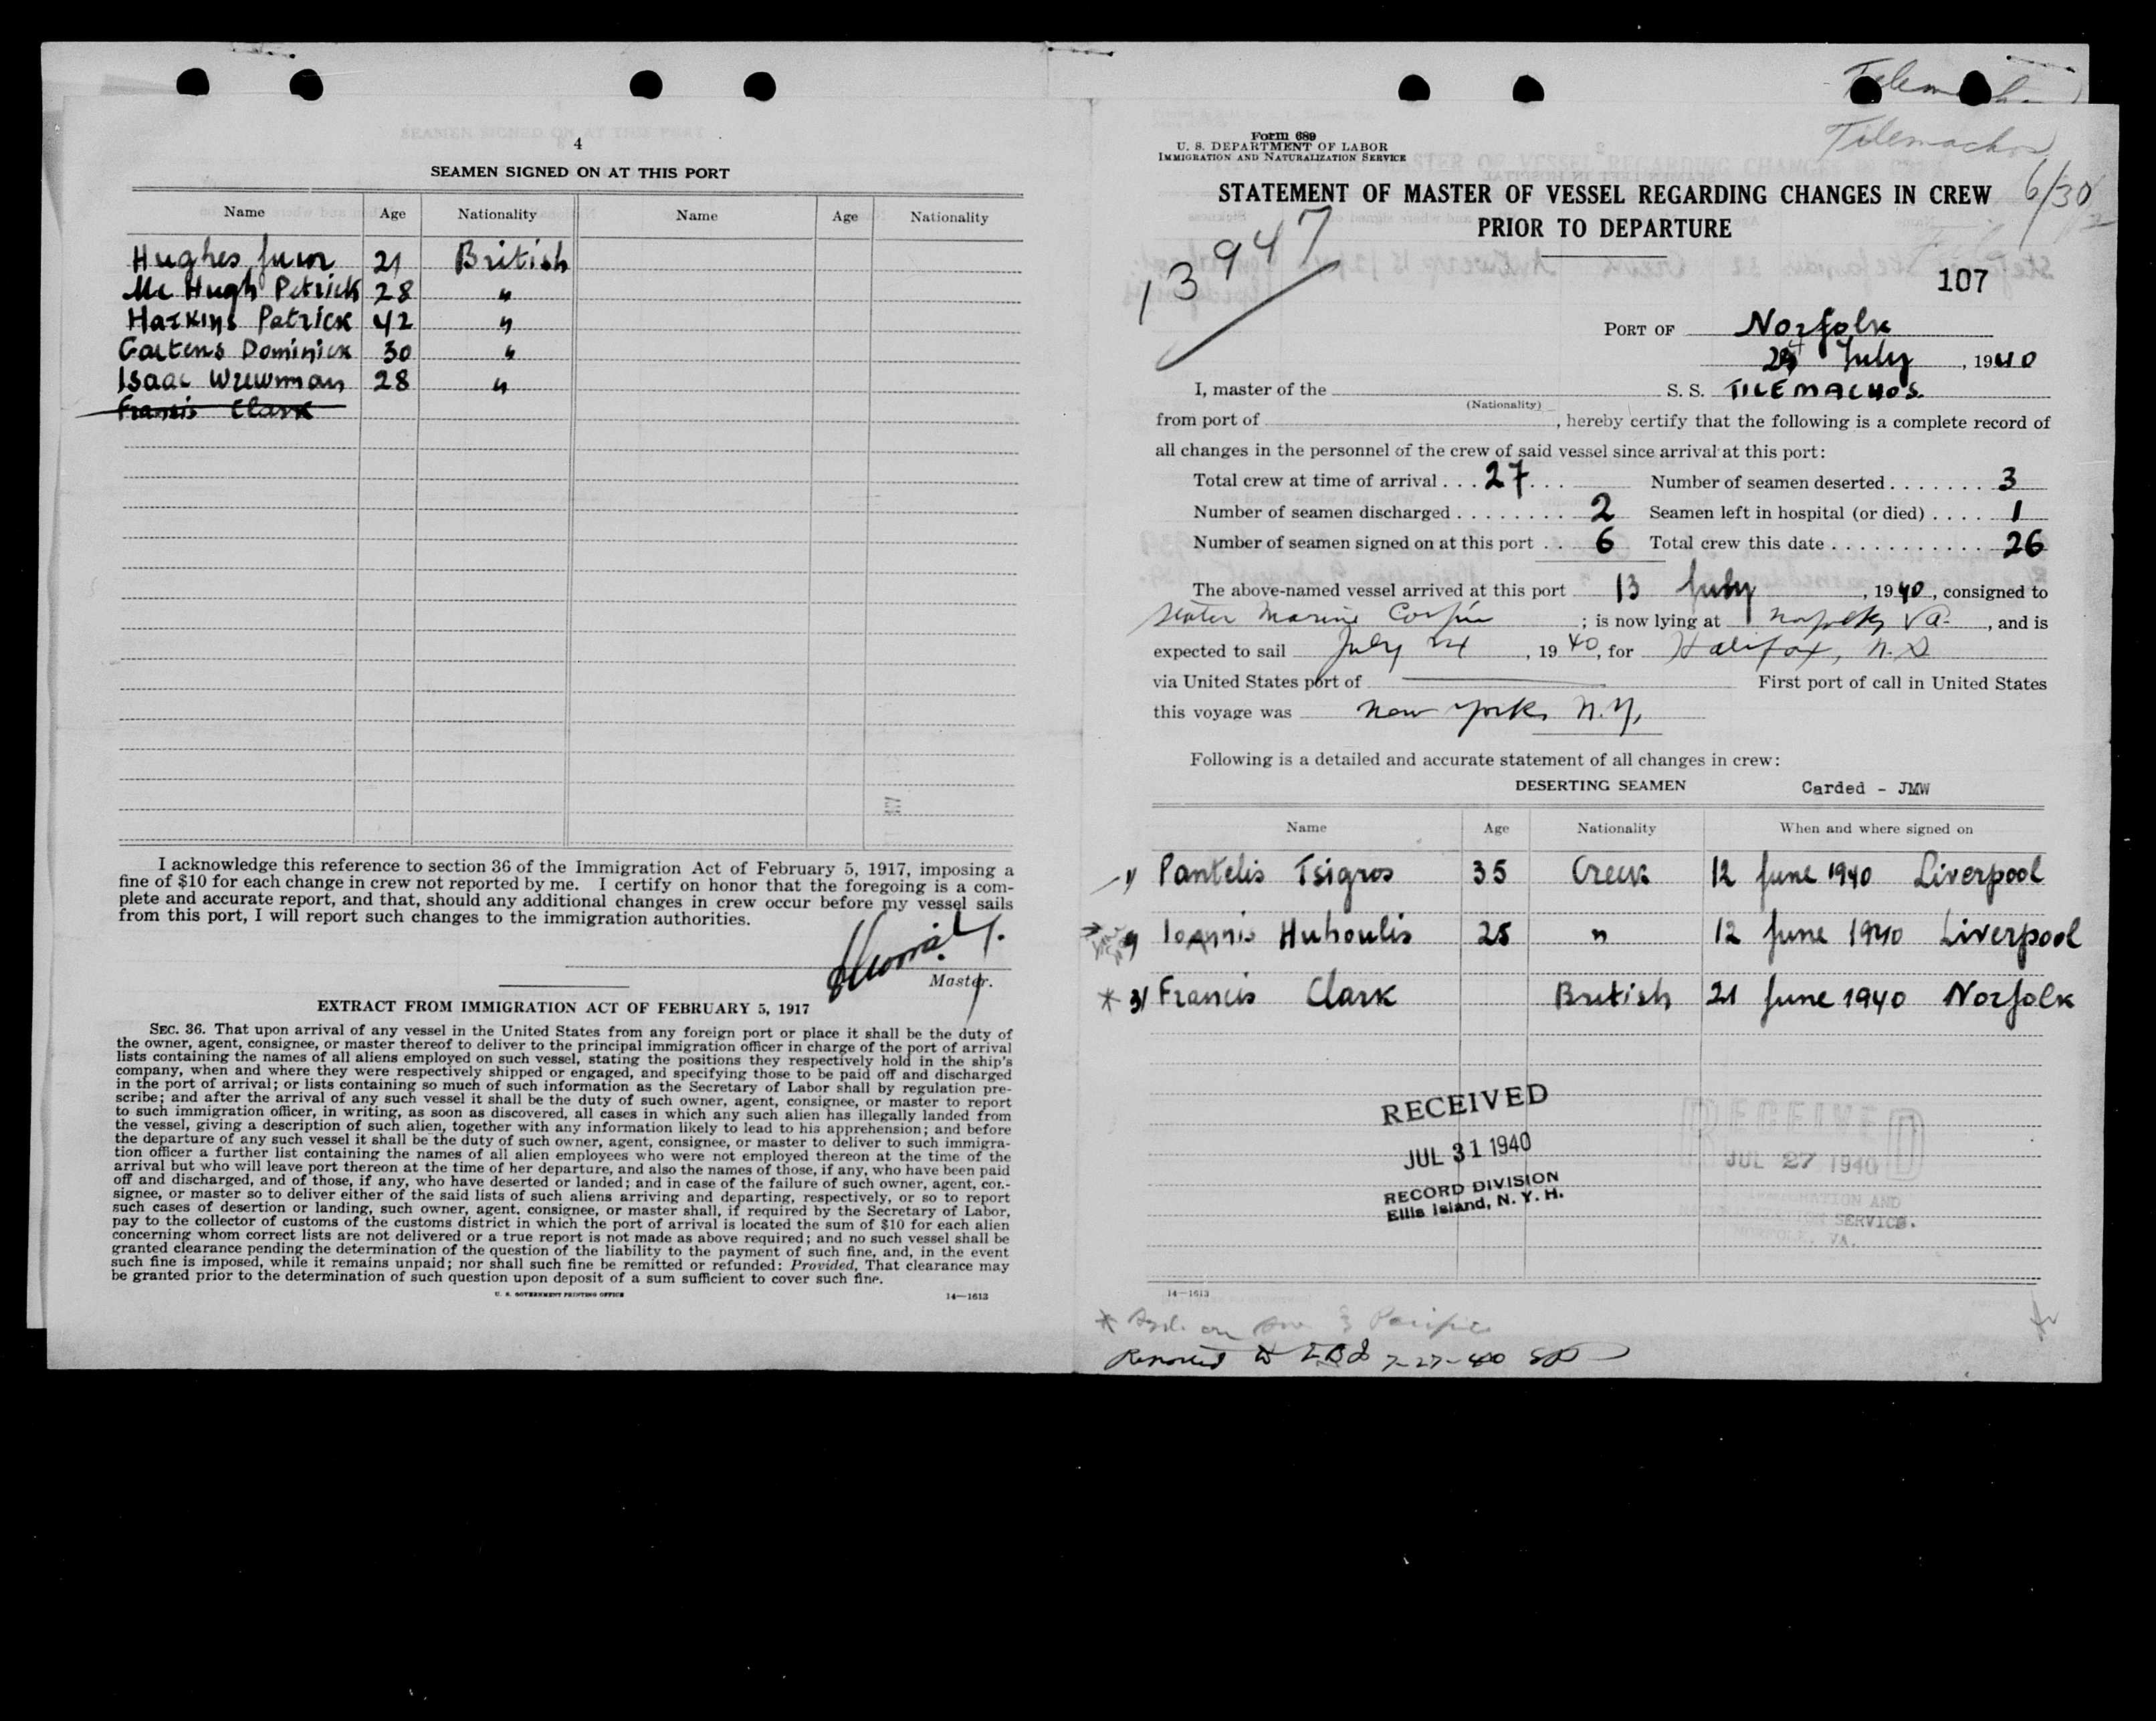 4
SEAMEN SIGNED ON AT THIS PORT
Name Age Nationality Name Age Nationality
Hughes 21 British
Mc Hugh Patrick 28 "
Harkins Patrick 42 "
Dominick 30 "
Isaac 28 "
Francis Clark
I acknowledge this reference to section 36 of the Immigration Act of February 5, 1917, imposing a
fine of $10 for each change in crew not reported by me. I certify on honor that the foregoing is a com-
plete and accurate report, and that, should any additional changes in crew occur before my vessel sails
from this port, I will report such changes to the immigration authorities.
Master.
EXTRACT FROM IMMIGRATION ACT OF FEBRUARY 5, 1917
SEC. 36. That upon arrival of any vessel in the United States from any foreign port or place it shall be the duty of
the owner, agent, consignee, or master thereof to deliver to the principal immigration officer in charge of the port of arrival
lists containing the names of all aliens employed on such vessel, stating the positions they respectively hold in the ship's
company, when and where they were respectively shipped or engaged, and specifying those to be paid off and discharged
in the port of arrival; or lists containing so much of such information as the Secretary of Labor shall by regulation pre-
scribe; and after the arrival of any such vessel it shall be the duty of such owner, agent, consignee, or master to report
to such immigration officer, in writing, as soon as discovered, all cases in which any such alien has illegally landed from
the vessel, giving a description of such alien, together with any information likely to lead to his apprehension; and before
the departure of any such vessel it shall be the duty of such owner, agent, consignee, or master to deliver to such immigra-
tion officer a further list containing the names of all alien employees who were not employed thereon at the time of the
arrival but who will leave port thereon at the time of her departure, and also the names of those, if any, who have been paid
off and discharged, and of those, if any, who have deserted or landed; and in case of the failure of such owner, agent, con-
signee, or master so to deliver either of the said lists of such aliens arriving and departing, respectively, or so to report
such cases of desertion or landing, such owner, agent, consignee, or master shall, if required by the Secretary of Labor,
pay to the collector of customs of the customs district in which the port of arrival is located the sum of $10 for each alien
concerning whom correct lists are not delivered or a true report is not made as above required; and no such vessel shall be
granted clearance pending the determination of the question of the liability to the payment of such fine, and, in the event
such fine is imposed, while it remains unpaid; nor shall such fine be remitted or refunded: Provided, That clearance may
be granted prior to the determination of such question upon deposit of a sum sufficient to cover such fine.
U. S. GOVERNMENT PRINTING OFFICE 14—1613
Tilemachos
6/30
Form 689
U. S. DEPARTMENT OF LABOR
IMMIGRATION AND NATURALIZATION SERVICE
STATEMENT OF MASTER OF VESSEL REGARDING CHANGES IN CREW
PRIOR TO DEPARTURE
13947
107
PORT OF Norfolk
24 July, 1940
I, master of the S. S. TILEMACHOS.
(Nationality)
from port of , hereby certify that the following is a complete record of
all changes in the personnel of the crew of said vessel since arrival at this port:
Total crew at time of arrival . . . 27 . . . Number of seamen deserted . . . . . . . . 3
Number of seamen discharged . . . . . . . . 2 Seamen left in hospital (or died) . . . . 1
Number of seamen signed on at this port . . 6 Total crew this date . . . . . . . . . . . . 26
The above-named vessel arrived at this port 13 July, 1940, consigned to
Stater Marine ; is now lying at Norfolk, Va., and is
expected to sail July 24, 1940, for Halifax, N.S
via United States port of First port of call in United States
this voyage was New York, N.Y.
Following is a detailed and accurate statement of all changes in crew:
DESERTING SEAMEN Carded - JMW
Name Age Nationality When and where signed on
1/ Pantelis Tsigros 35 Greek 12 June 1940 Liverpool
Ioannis Huhoulis 25 " 12 June 1940 Liverpool
* 3/ Francis Clark British 21 June 1940 Norfolk
RECEIVED
JUL 31 1940
RECORD DIVISION
Ellis Island, N. Y. H.
RECEIVED
JUL 27 1940
IMMIGRATION AND
NATURALIZATION SERVICE.
NORFOLK, VA.
14—1613
Reported 7-27-40